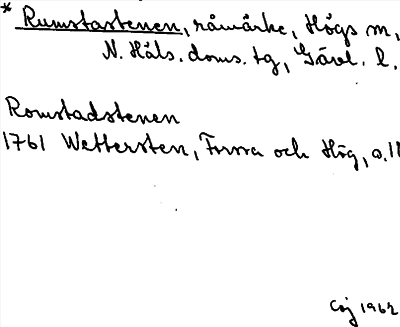 * Rumstastenen, råmärke, Högs sn,
N. Häls. doms. tg, Gävl. l.
Romstadstenen
1761 Wettersten, Forsa och Hög, s. 11
1962